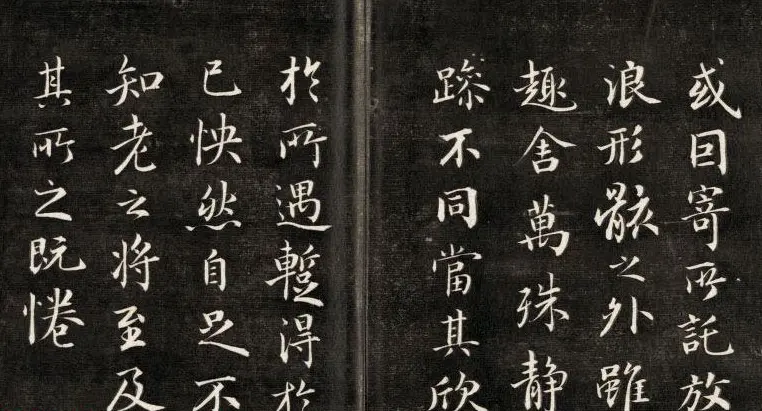 或因寄所託放
浪形骸之外雖
趣舍萬殊静
躁不同當其欣
於所遇蹔得於
己怏然自足不
知老之将至及
其所之既惓